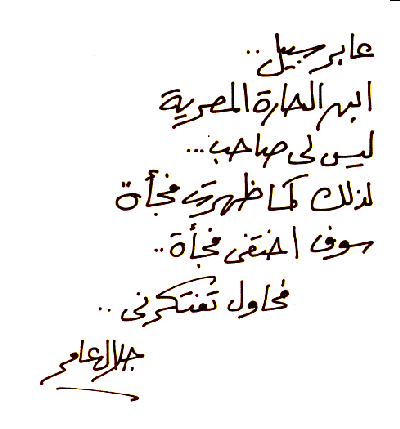 عابر سبيل..
ابن الحارة المصرية
ليس لى صاحب...
لذلك كما ظهرت فجأة
سوف اختفى فجأة..
فحاول تفتكرنى..
جلال عامر